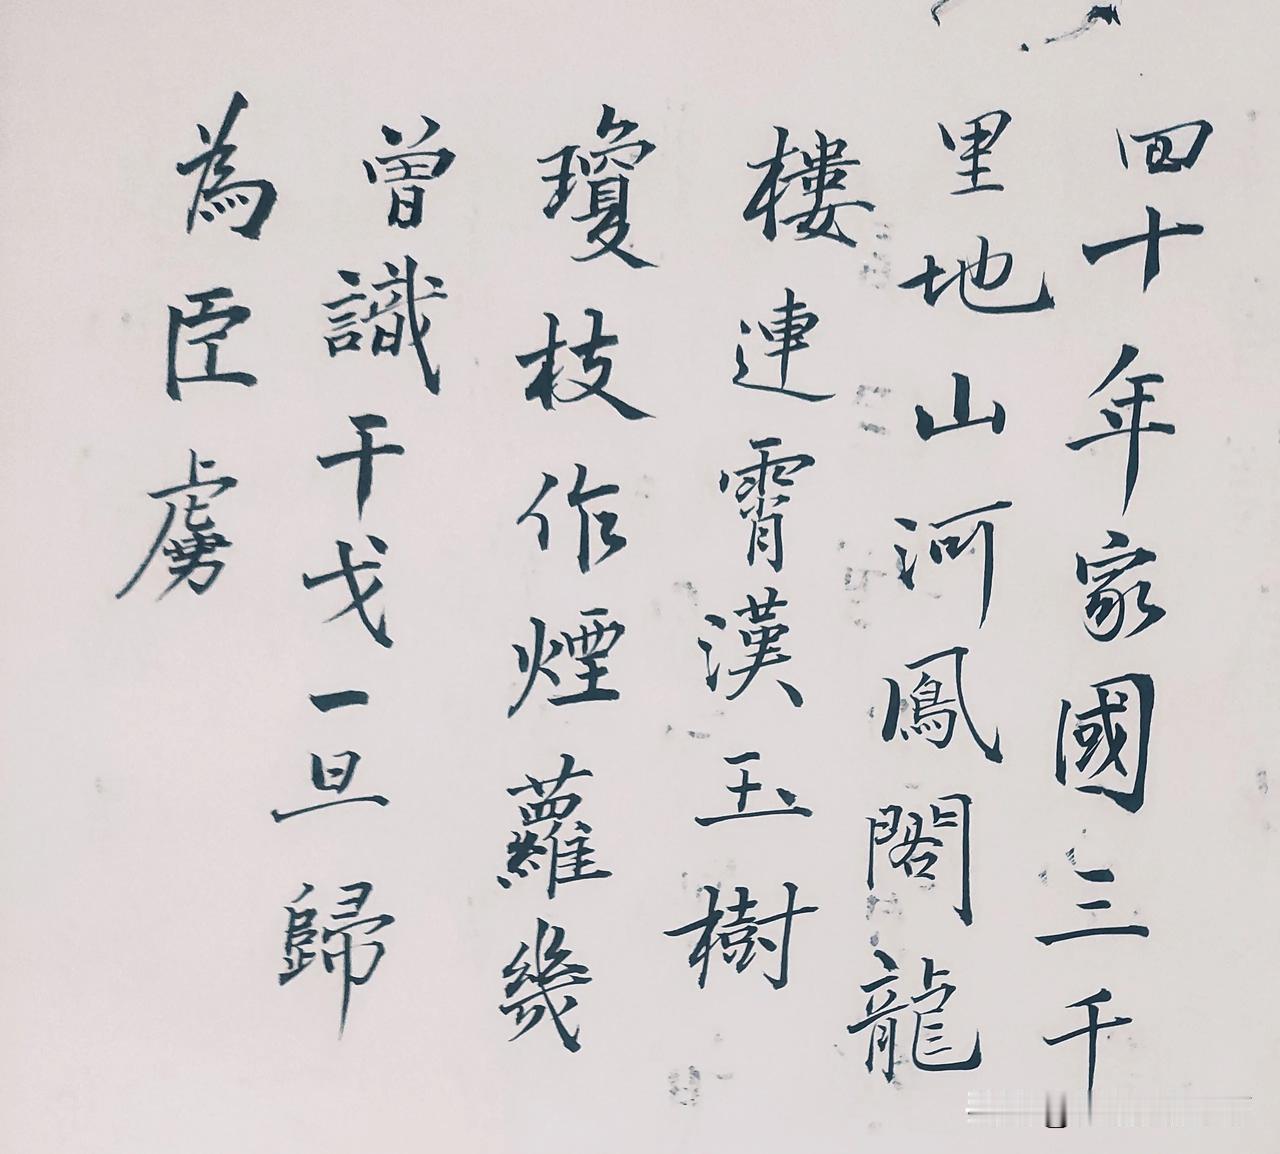 四十年家國三千
里地山河鳳閣龍
樓連霄漢玉樹
瓊枝作煙蘿幾
曾識干戈一旦歸
為臣虜